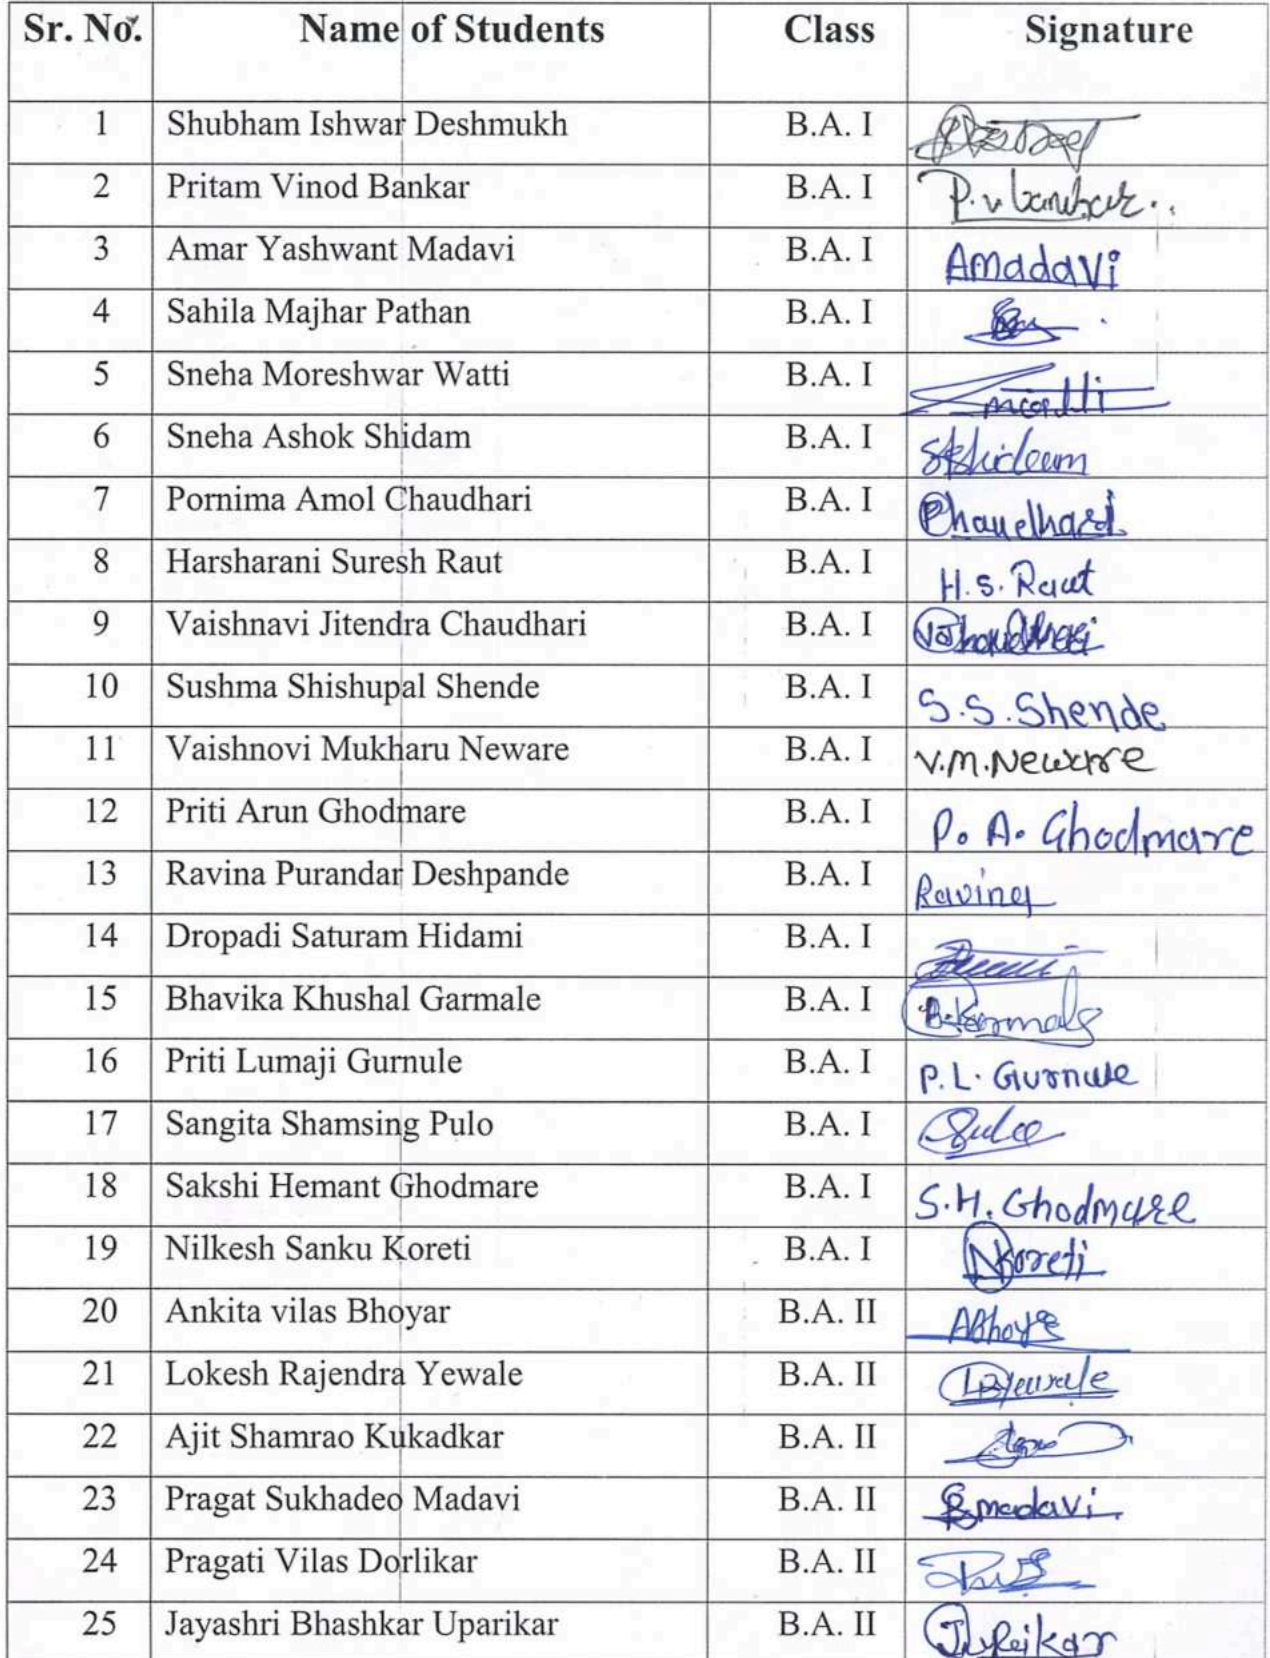 Sr. No. Name of Students Class Signature
1 Shubham Ishwar Deshmukh B.A. I
2 Pritam Vinod Bankar B.A. I P.V. Bankar..
3 Amar Yashwant Madavi B.A. I AMadavi
4 Sahila Majhar Pathan B.A. I
5 Sneha Moreshwar Watti B.A. I
6 Sneha Ashok Shidam B.A. I
7 Pornima Amol Chaudhari B.A. I
8 Harsharani Suresh Raut B.A. I H.S. Raut
9 Vaishnavi Jitendra Chaudhari B.A. I
10 Sushma Shishupal Shende B.A. I S.S. Shende
11 Vaishnovi Mukharu Neware B.A. I V.M.Neware
12 Priti Arun Ghodmare B.A. I P. A. Ghodmare
13 Ravina Purandar Deshpande B.A. I Ravina
14 Dropadi Saturam Hidami B.A. I
15 Bhavika Khushal Garmale B.A. I
16 Priti Lumaji Gurnule B.A. I P.L. Gurnule
17 Sangita Shamsing Pulo B.A. I
18 Sakshi Hemant Ghodmare B.A. I S.H. Ghodmare
19 Nilkesh Sanku Koreti B.A. I NKoreti
20 Ankita vilas Bhoyar B.A. II
21 Lokesh Rajendra Yewale B.A. II
22 Ajit Shamrao Kukadkar B.A. II
23 Pragat Sukhadeo Madavi B.A. II
24 Pragati Vilas Dorlikar B.A. II
25 Jayashri Bhashkar Uparikar B.A. II